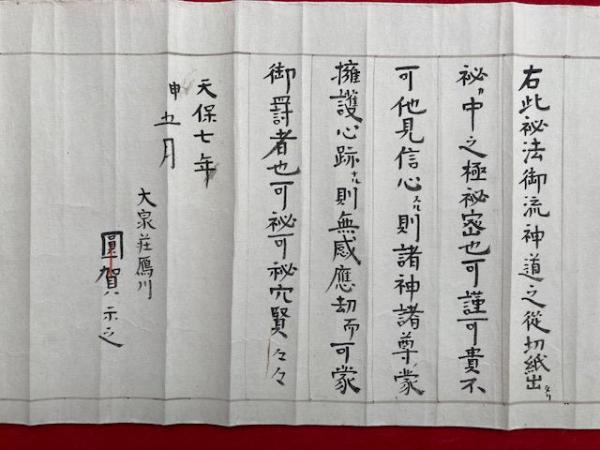 右此祕法御流神道之從切紙出タリ
祕カ中之極祕密也可謹可貴不
可他見信心スレハ則諸神諸尊ノ蒙
擁護心跡ナレハ則無感應却而可蒙
御罸者也可祕可祕穴賢々々
天保七年
申五月
大泉莊鴈川
圓賀示之